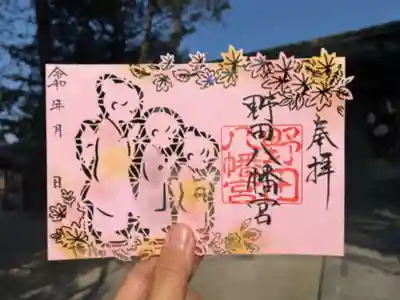 奉拝
野田八幡宮
野田八幡宮
令和 年 月 日